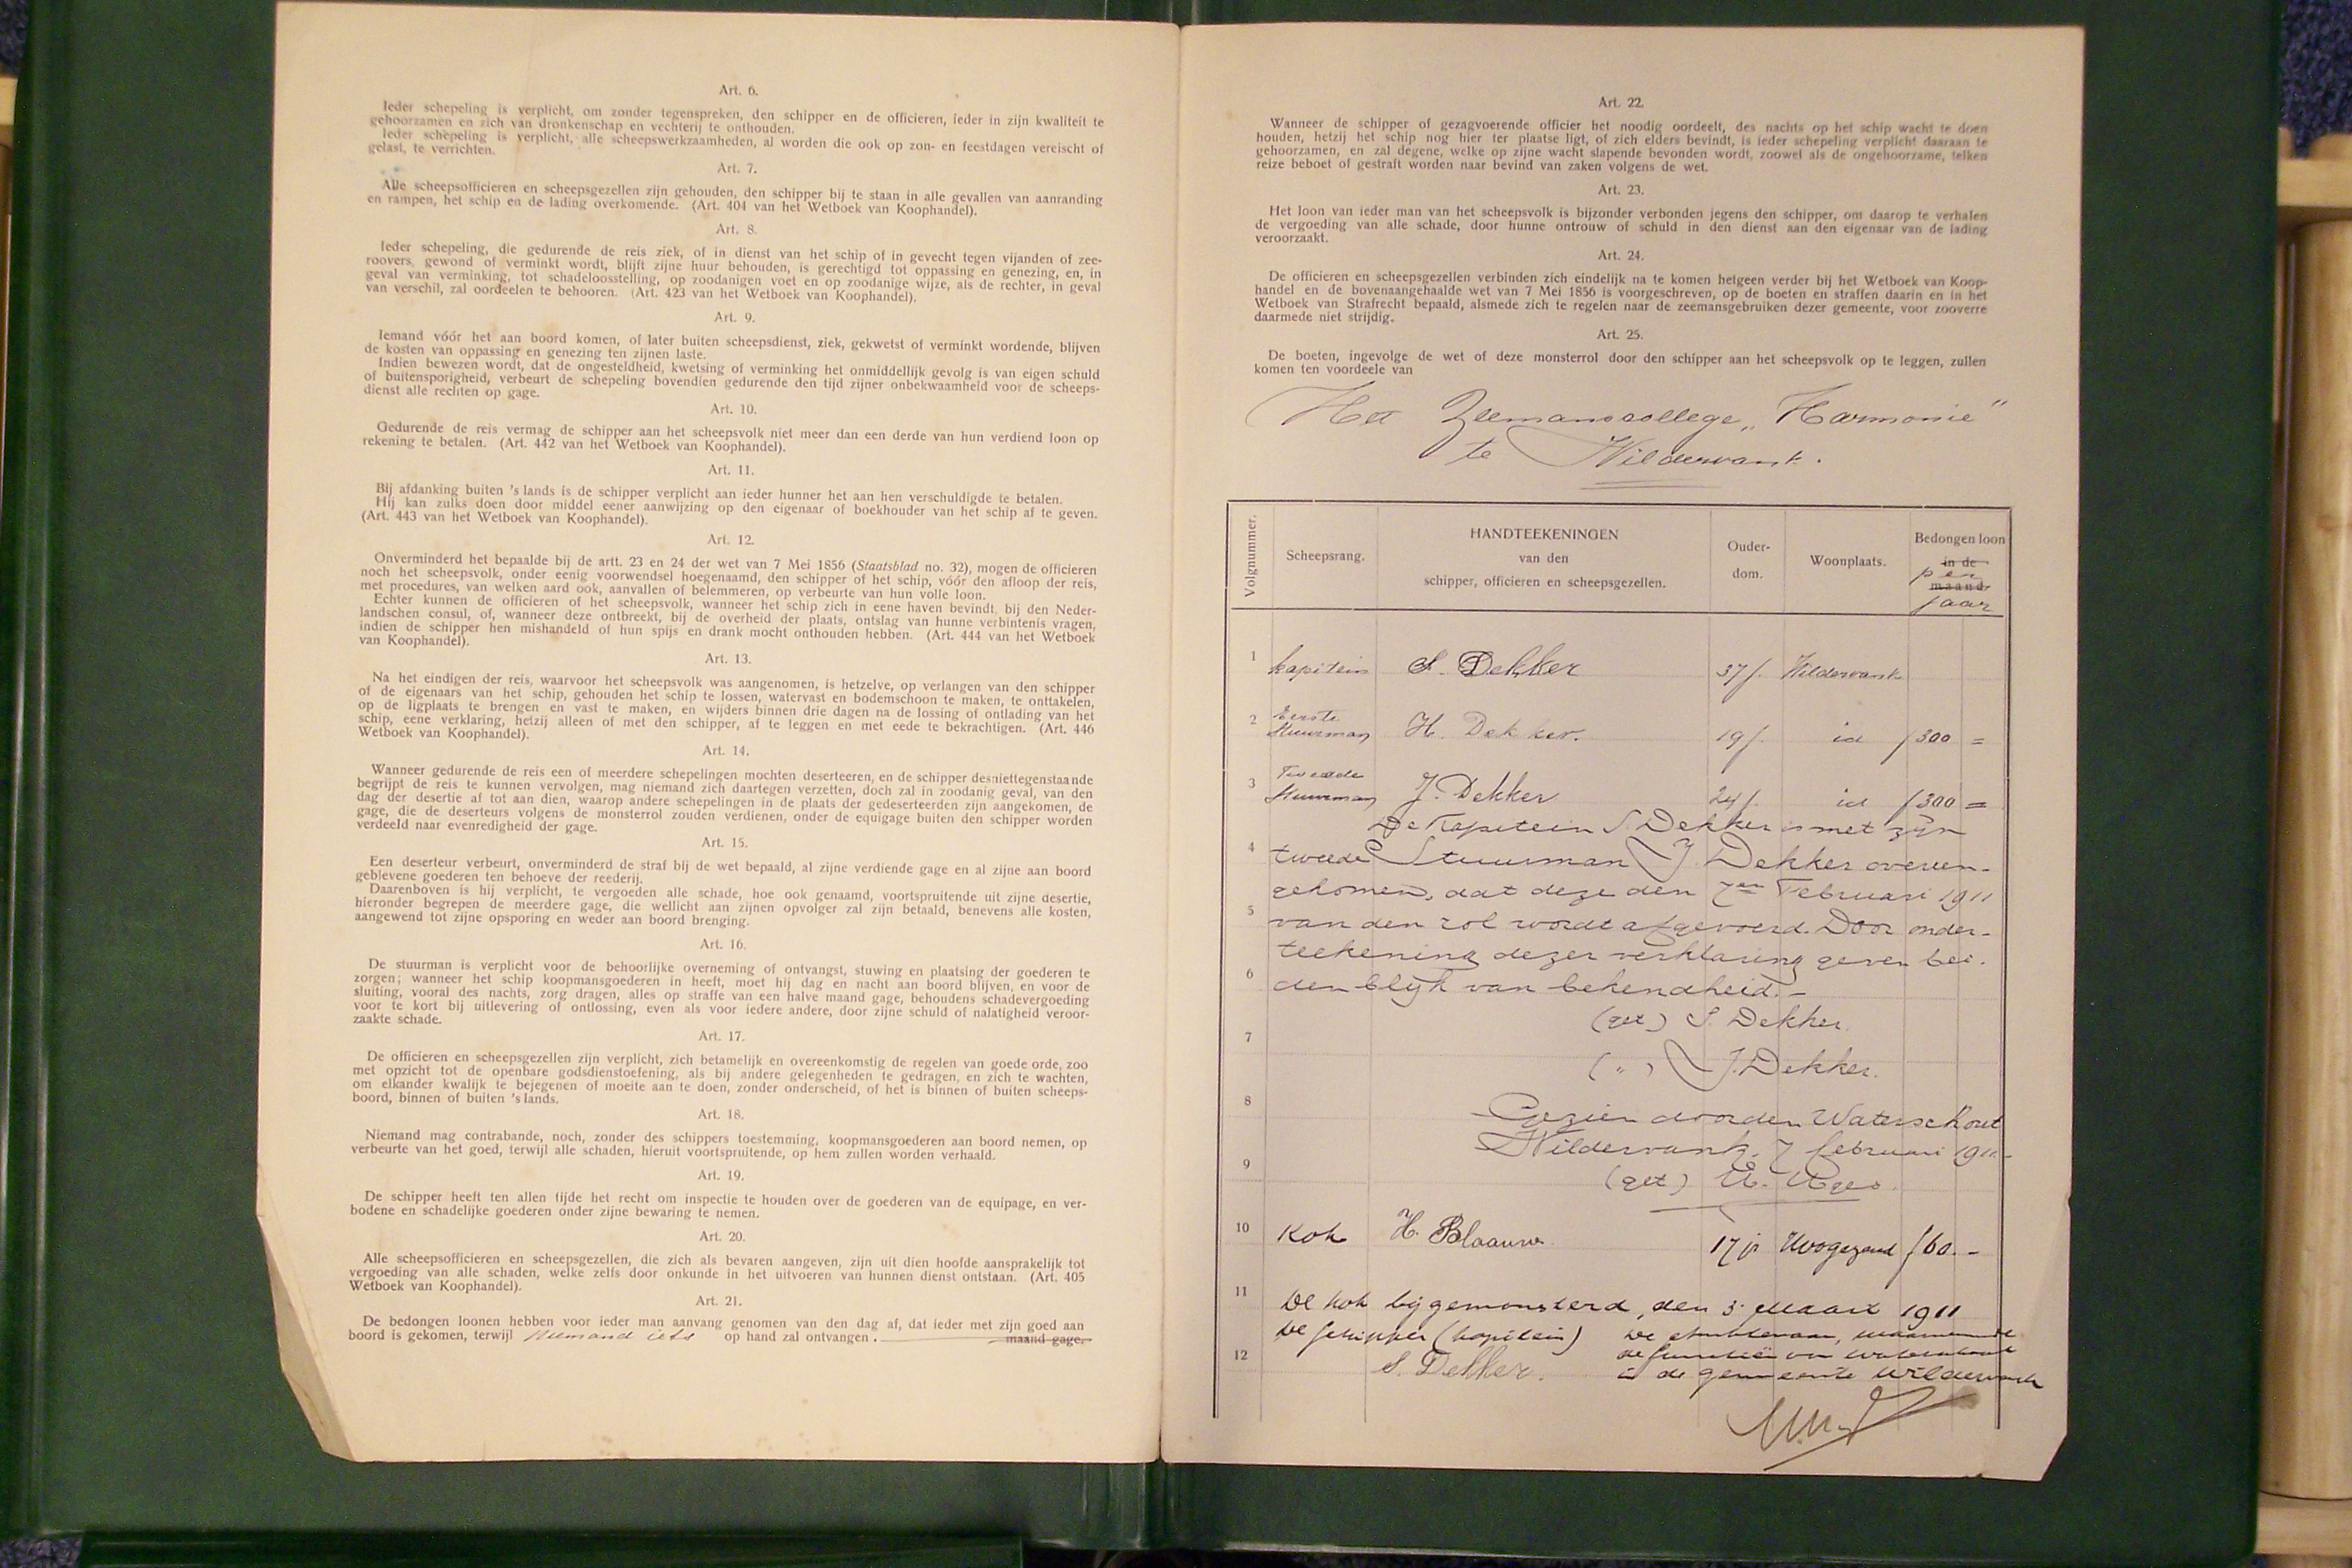 Art. 6.
Ieder schepeling is verplicht, om zonder tegenspreken, den schipper en de officieren, ieder in zijn kwaliteit te
gehoorzamen en zich van dronkenschap en vechterij te onthouden.
Ieder schepeling is verplicht, alle scheepswerkzaamheden, al worden die ook op zon- en feestdagen vereischt of
gelast, te verrichten.
Art. 7.
Alle scheepsofficieren en scheepsgezellen zijn gehouden, den schipper bij te staan in alle gevallen van aanranding
en rampen, het schip en de lading overkomende. (Art. 404 van het Wetboek van Koophandel).
Art. 8.
Ieder schepeling, die gedurende de reis ziek, of in dienst van het schip of in gevecht tegen vijanden of zee-
roovers, gewond of verminkt wordt, blijft zijne huur behouden, is gerechtigd tot oppassing en genezing, en, in
geval van verminking, tot schadeloosstelling, op zoodanigen voet en op zoodanige wijze, als de rechter, in geval
van verschil, zal oordeelen te behooren. (Art. 423 van het Wetboek van Koophandel).
Art. 9.
Iemand vóór het aan boord komen, of later buiten scheepsdienst, ziek, gekwetst of verminkt wordende, blijven
de kosten van oppassing en genezing ten zijnen laste.
Indien bewezen wordt, dat de ongesteldheid, kwetsing of verminking het onmiddellijk gevolg is van eigen schuld
of buitensporigheid, verbeurt de schepeling bovendien gedurende den tijd zijner onbekwaamheid voor de scheeps-
dienst alle rechten op gage.
Art. 10.
Gedurende de reis vermag de schipper aan het scheepsvolk niet meer dan een derde van hun verdiend loon op
rekening te betalen. (Art. 442 van het Wetboek van Koophandel).
Art. 11.
Bij afdanking buiten 's lands is de schipper verplicht aan ieder hunner het aan hen verschuldigde te betalen.
Hij kan zulks doen door middel eener aanwijzing op den eigenaar of boekhouder van het schip af te geven.
(Art. 443 van het Wetboek van Koophandel).
Art. 12.
Onverminderd het bepaalde bij de artt. 23 en 24 der wet van 7 Mei 1856 (Staatsblad no. 32), mogen de officieren
noch het scheepsvolk, onder eenig voorwendsel hoegenaamd, den schipper of het schip, vóór den afloop der reis,
met procedures, van welken aard ook, aanvallen of belemmeren, op verbeurte van hun volle loon.
Echter kunnen de officieren of het scheepsvolk, wanneer het schip zich in eene haven bevindt, bij den Neder-
landschen consul, of, wanneer deze ontbreekt, bij de overheid der plaats, ontslag van hunne verbintenis vragen,
indien de schipper hen mishandeld of hun spijs en drank mocht onthouden hebben. (Art. 444 van het Wetboek
van Koophandel).
Art. 13.
Na het eindigen der reis, waarvoor het scheepsvolk was aangenomen, is hetzelve, op verlangen van den schipper
of de eigenaars van het schip, gehouden het schip te lossen, watervast en bodemschoon te maken, te onttakelen,
op de ligplaats te brengen en vast te maken, en wijders binnen drie dagen na de lossing of ontlading van het
schip, eene verklaring, hetzij alleen of met den schipper, af te leggen en met eede te bekrachtigen. (Art. 446
Wetboek van Koophandel).
Art. 14.
Wanneer gedurende de reis een of meerdere schepelingen mochten deserteeren, en de schipper desniettegenstaande
begrijpt de reis te kunnen vervolgen, mag niemand zich daartegen verzetten, doch zal in zoodanig geval, van den
dag der desertie af tot aan dien, waarop andere schepelingen in de plaats der gedeserteerden zijn aangekomen, de
gage, die de deserteurs volgens de monsterrol zouden verdienen, onder de equigage buiten den schipper worden
verdeeld naar evenredigheid der gage.
Art. 15.
Een deserteur verbeurt, onverminderd de straf bij de wet bepaald, al zijne verdiende gage en al zijne aan boord
geblevene goederen ten behoeve der reederij.
Daarenboven is hij verplicht, te vergoeden alle schade, hoe ook genaamd, voortspruitende uit zijne desertie,
hieronder begrepen de meerdere gage, die wellicht aan zijnen opvolger zal zijn betaald, benevens alle kosten,
aangewend tot zijne opsporing en weder aan boord brenging.
Art. 16.
De stuurman is verplicht voor de behoorlijke overneming of ontvangst, stuwing en plaatsing der goederen te
zorgen; wanneer het schip koopmansgoederen in heeft, moet hij dag en nacht aan boord blijven, en voor de
sluiting, vooral des nachts, zorg dragen, alles op straffe van een halve maand gage, behoudens schadevergoeding
voor te kort bij uitlevering of ontlossing, even als voor iedere andere, door zijne schuld of nalatigheid veroor-
zaakte schade.
Art. 17.
De officieren en scheepsgezellen zijn verplicht, zich betamelijk en overeenkomstig de regelen van goede orde, zoo
met opzicht tot de openbare godsdienstoefening, als bij andere gelegenheden te gedragen, en zich te wachten,
om elkander kwalijk te bejegenen of moeite aan te doen, zonder onderscheid, of het is binnen of buiten scheeps-
boord, binnen of buiten 's lands.
Art. 18.
Niemand mag contrabande, noch, zonder des schippers toestemming, koopmansgoederen aan boord nemen, op
verbeurte van het goed, terwijl alle schaden, hieruit voortspruitende, op hem zullen worden verhaald.
Art. 19.
De schipper heeft ten allen tijde het recht om inspectie te houden over de goederen van de equipage, en ver-
bodene en schadelijke goederen onder zijne bewaring te nemen.
Art. 20.
Alle scheepsofficieren en scheepsgezellen, die zich als bevaren aangeven, zijn uit dien hoofde aansprakelijk tot
vergoeding van alle schaden, welke zelfs door onkunde in het uitvoeren van hunnen dienst ontstaan. (Art. 405
Wetboek van Koophandel).
Art. 21.
De bedongen loonen hebben voor ieder man aanvang genomen van den dag af, dat ieder met zijn goed aan
boord is gekomen, terwijl Niemand iets op hand zal ontvangen. maand gage.
Art. 22.
Wanneer de schipper of gezagvoerende officier het noodig oordeelt, des nachts op het schip wacht te doen
houden, hetzij het schip nog hier ter plaatse ligt, of zich elders bevindt, is ieder schepeling verplicht daaraan te
gehoorzamen, en zal degene, welke op zijne wacht slapende bevonden wordt, zoowel als de ongehoorzame, telken
reize beboet of gestraft worden naar bevind van zaken volgens de wet.
Art. 23.
Het loon van ieder man van het scheepsvolk is bijzonder verbonden jegens den schipper, om daarop te verhalen
de vergoeding van alle schade, door hunne ontrouw of schuld in den dienst aan den eigenaar van de lading
veroorzaakt.
Art. 24.
De officieren en scheepsgezellen verbinden zich eindelijk na te komen hetgeen verder bij het Wetboek van Koop-
handel en de bovenaangehaalde wet van 7 Mei 1856 is voorgeschreven, op de boeten en straffen daarin en in het
Wetboek van Strafrecht bepaald, alsmede zich te regelen naar de zeemansgebruiken dezer gemeente, voor zooverre
daarmede niet strijdig.
Art. 25.
De boeten, ingevolge de wet of deze monsterrol door den schipper aan het scheepsvolk op te leggen, zullen
komen ten voordeele van
Het Zeemanscollege „Harmonie"
te Wildervank.
Volgnummer. Scheepsrang. HANDTEEKENINGEN van den schipper, officieren en scheepsgezellen. Ouder-dom. Woonplaats. Bedongen loon in de maand per jaar
1 kapitein S. Dekker 37 j. Wildervank
2 Eerste Stuurman H. Dekker. 19 j. id f 300 =
3 Tweede Stuurman J. Dekker 24 j. id f 300 =
De Kapitein S. Dekker is met zijn
4 tweede Stuurman J. Dekker overeen-
gekomen, dat deze den 7en Februari 1911
5 van den rol wordt afgevoerd. Door onder-
teekening dezer verklaring geven bei-
6 den blijk van bekendheid. -
(get) S. Dekker.
7
( " ) J. Dekker.
8 Gezien door den Waterschout
Wildervank, 7 februari 1911.-
9 (get)
10 Kok H. Blaauw. 17 jr Hoogezand f 60.-
11 De kok bijgemonsterd, den 3 Maart 1911
De schipper (kapitein) De ambtenaar, waarnemende
de functiën van waterschout
12 S. Dekker. in de gemeente Wildervank